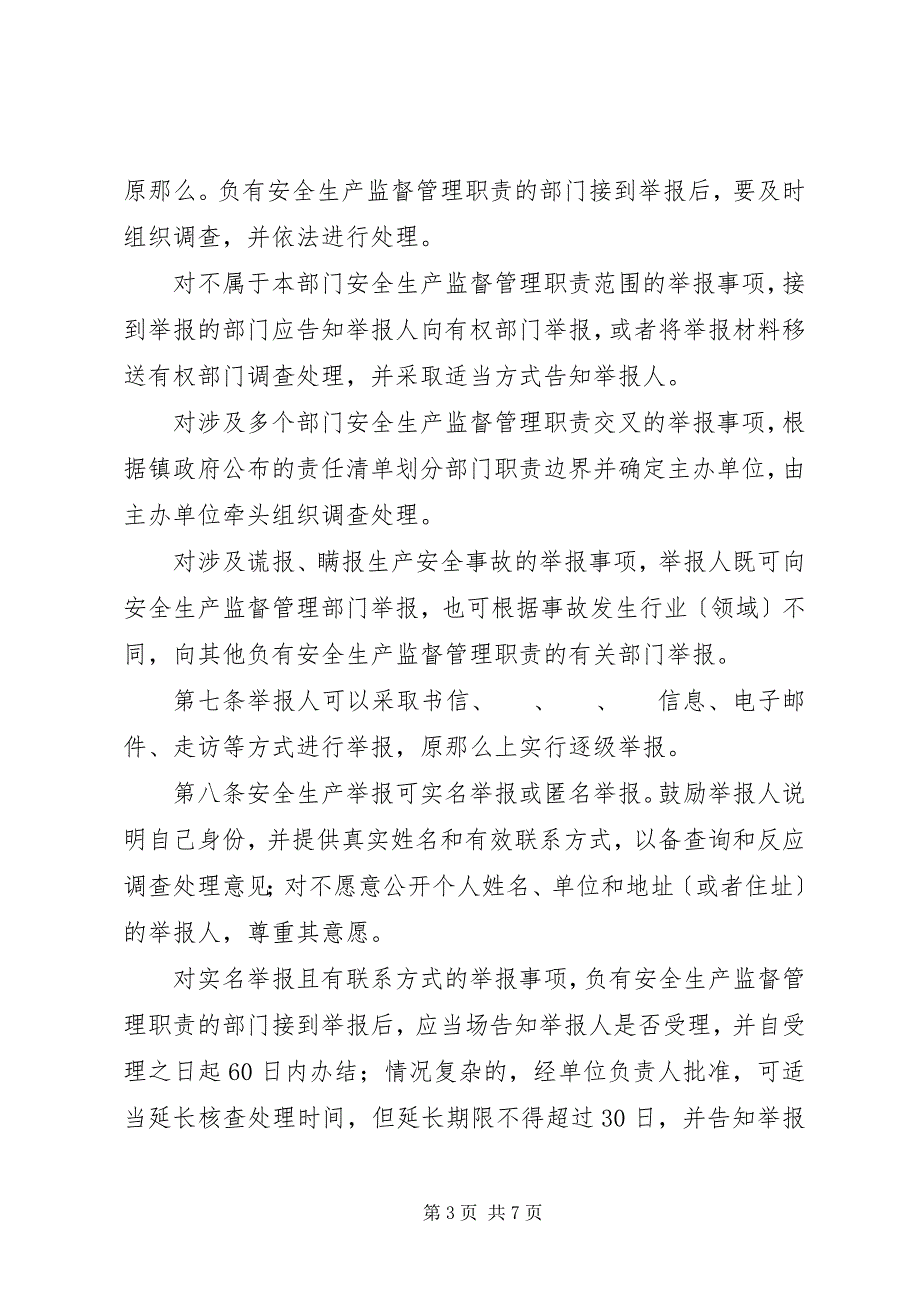 原那么。负有安全生产监督管理职责的部门接到举报后，要及时
组织调查，并依法进行处理。
对不属于本部门安全生产监督管理职责范围的举报事项，接
到举报的部门应告知举报人向有权部门举报，或者将举报材料移
送有权部门调查处理，并采取适当方式告知举报人。
对涉及多个部门安全生产监督管理职责交叉的举报事项，根
据镇政府公布的责任清单划分部门职责边界并确定主办单位，由
主办单位牵头组织调查处理。
对涉及谎报、瞒报生产安全事故的举报事项，举报人既可向
安全生产监督管理部门举报，也可根据事故发生行业〔领域〕不
同，向其他负有安全生产监督管理职责的有关部门举报。
第七条举报人可以采取书信、　、　、　信息、电子邮
件、走访等方式进行举报，原那么上实行逐级举报。
第八条安全生产举报可实名举报或匿名举报。鼓励举报人说
明自己身份，并提供真实姓名和有效联系方式，以备查询和反应
调查处理意见；对不愿意公开个人姓名、单位和地址〔或者住址〕
的举报人，尊重其意愿。
对实名举报且有联系方式的举报事项，负有安全生产监督管
理职责的部门接到举报后，应当场告知举报人是否受理，并自受
理之日起 60 日内办结；情况复杂的，经单位负责人批准，可适
当延长核查处理时间，但延长期限不得超过 30 日，并告知举报
第 3 页 共 7 页